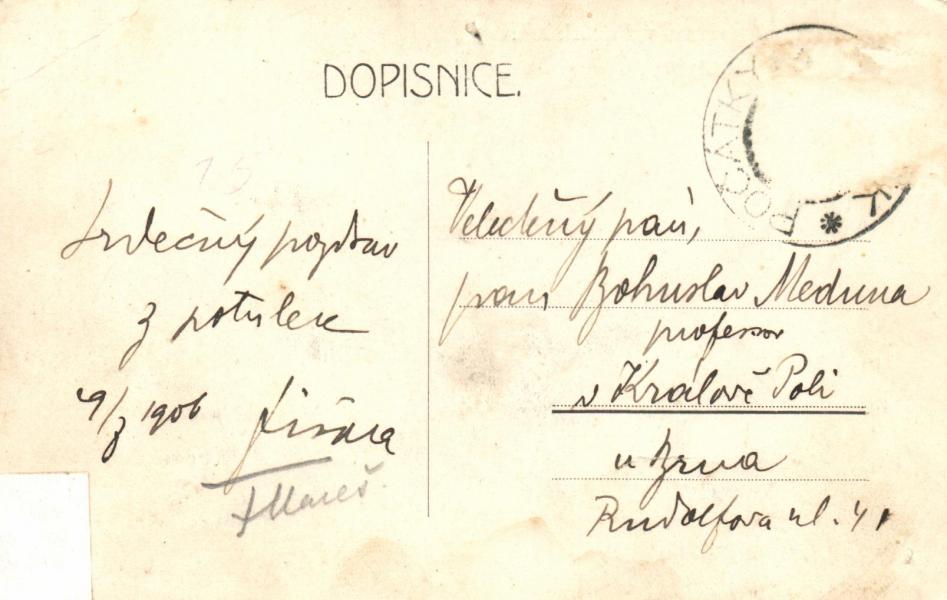 DOPISNICE.
POČÁTKY
Srdečný pozdrav
z potulek
1906
Velectěný pan,
pan, Bohuslav Meduna
professor
v Králově Poli
u Brna
Rudolfova ul. 41
FMareš